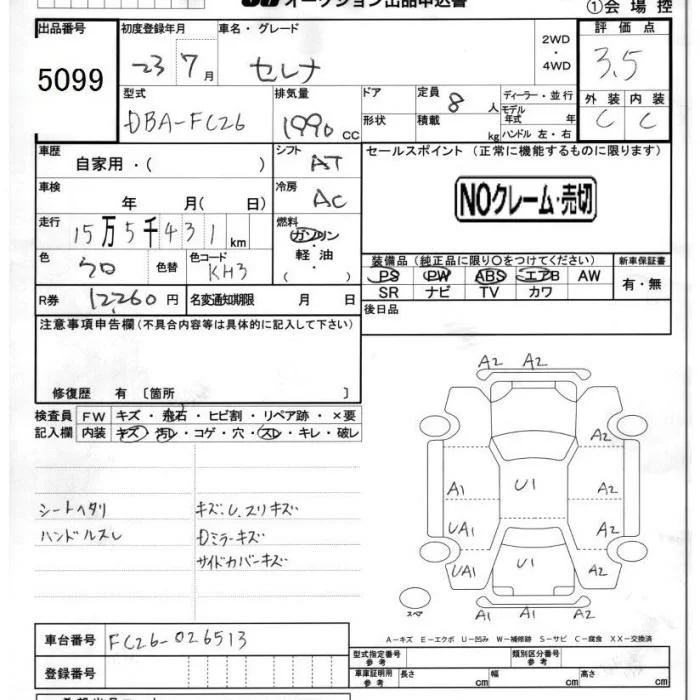 オークション出品申込書
①会場控
出品番号 初度登録年月 車名・グレード 2WD・4WD 評価点
5099 23 7月 セレナ 3.5
型式 排気量 ドア 定員 8人 ディーラー・並行 外装 内装
DBA-FC26 1990cc 形状 積載 kg モデル年式 年 ハンドル 左・右 C C
車歴 自家用・( ) シフト AT セールスポイント (正常に機能するものに限ります)
車検 年 月( 日) 冷房 AC NOクレーム・売切
走行 15万5千431km 燃料 ガソリン・軽油 ( )
色 クロ 色替 色コード KH3
装備品 (純正品に限り○をつけてください) 新車保証書
PS PW ABS エアB AW 有・無
SR ナビ TV カワ
R券 12,260円 名変通知期限 月 日
後日品
注意事項申告欄 (不具合内容等は具体的に記入して下さい)
修復歴 有 〔箇所 〕
検査員 FW キズ・飛石・ヒビ割・リペア跡・×要
記入欄 内装 キズ・汚レ・コゲ・穴・スレ・キレ・破レ
シートヘタリ キズ、U、スリキズ
ハンドルスレ Dミラーキズ
サイドカバーキズ
A2 A2
A2
A1 U1 A2
UA1 A2
UA1 U1 A2
スペア A1 A1 A2
A-キズ E-エクボ U-凹み W-補修跡 S-サビ C-腐食 XX-交換済
車台番号 FC26-026513
型式指定番号 参考 類別区分番号 参考
登録番号
車庫証明用 参考 長さ cm 幅 cm 高さ cm